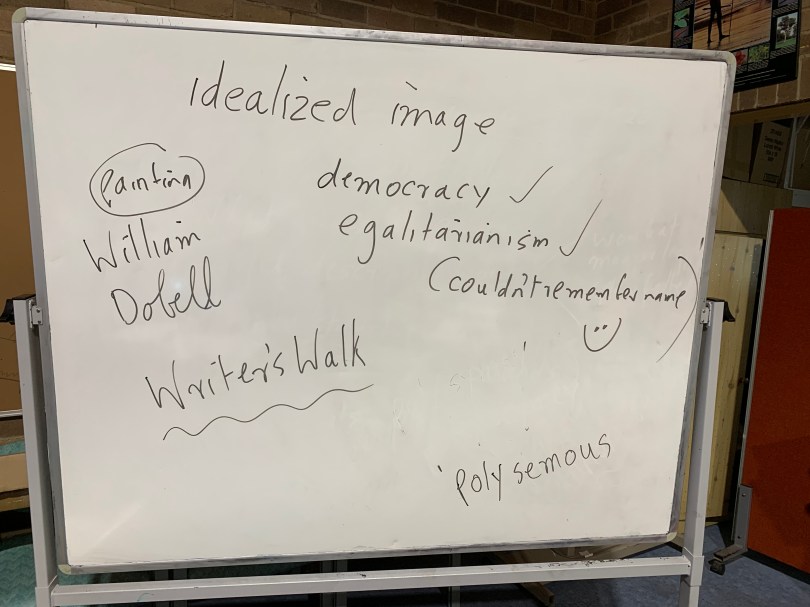 idealized image
Painting
William
Dobell
Writer's Walk
democracy ✓
egalitarianism ✓
(couldn't remember name)
polysemous